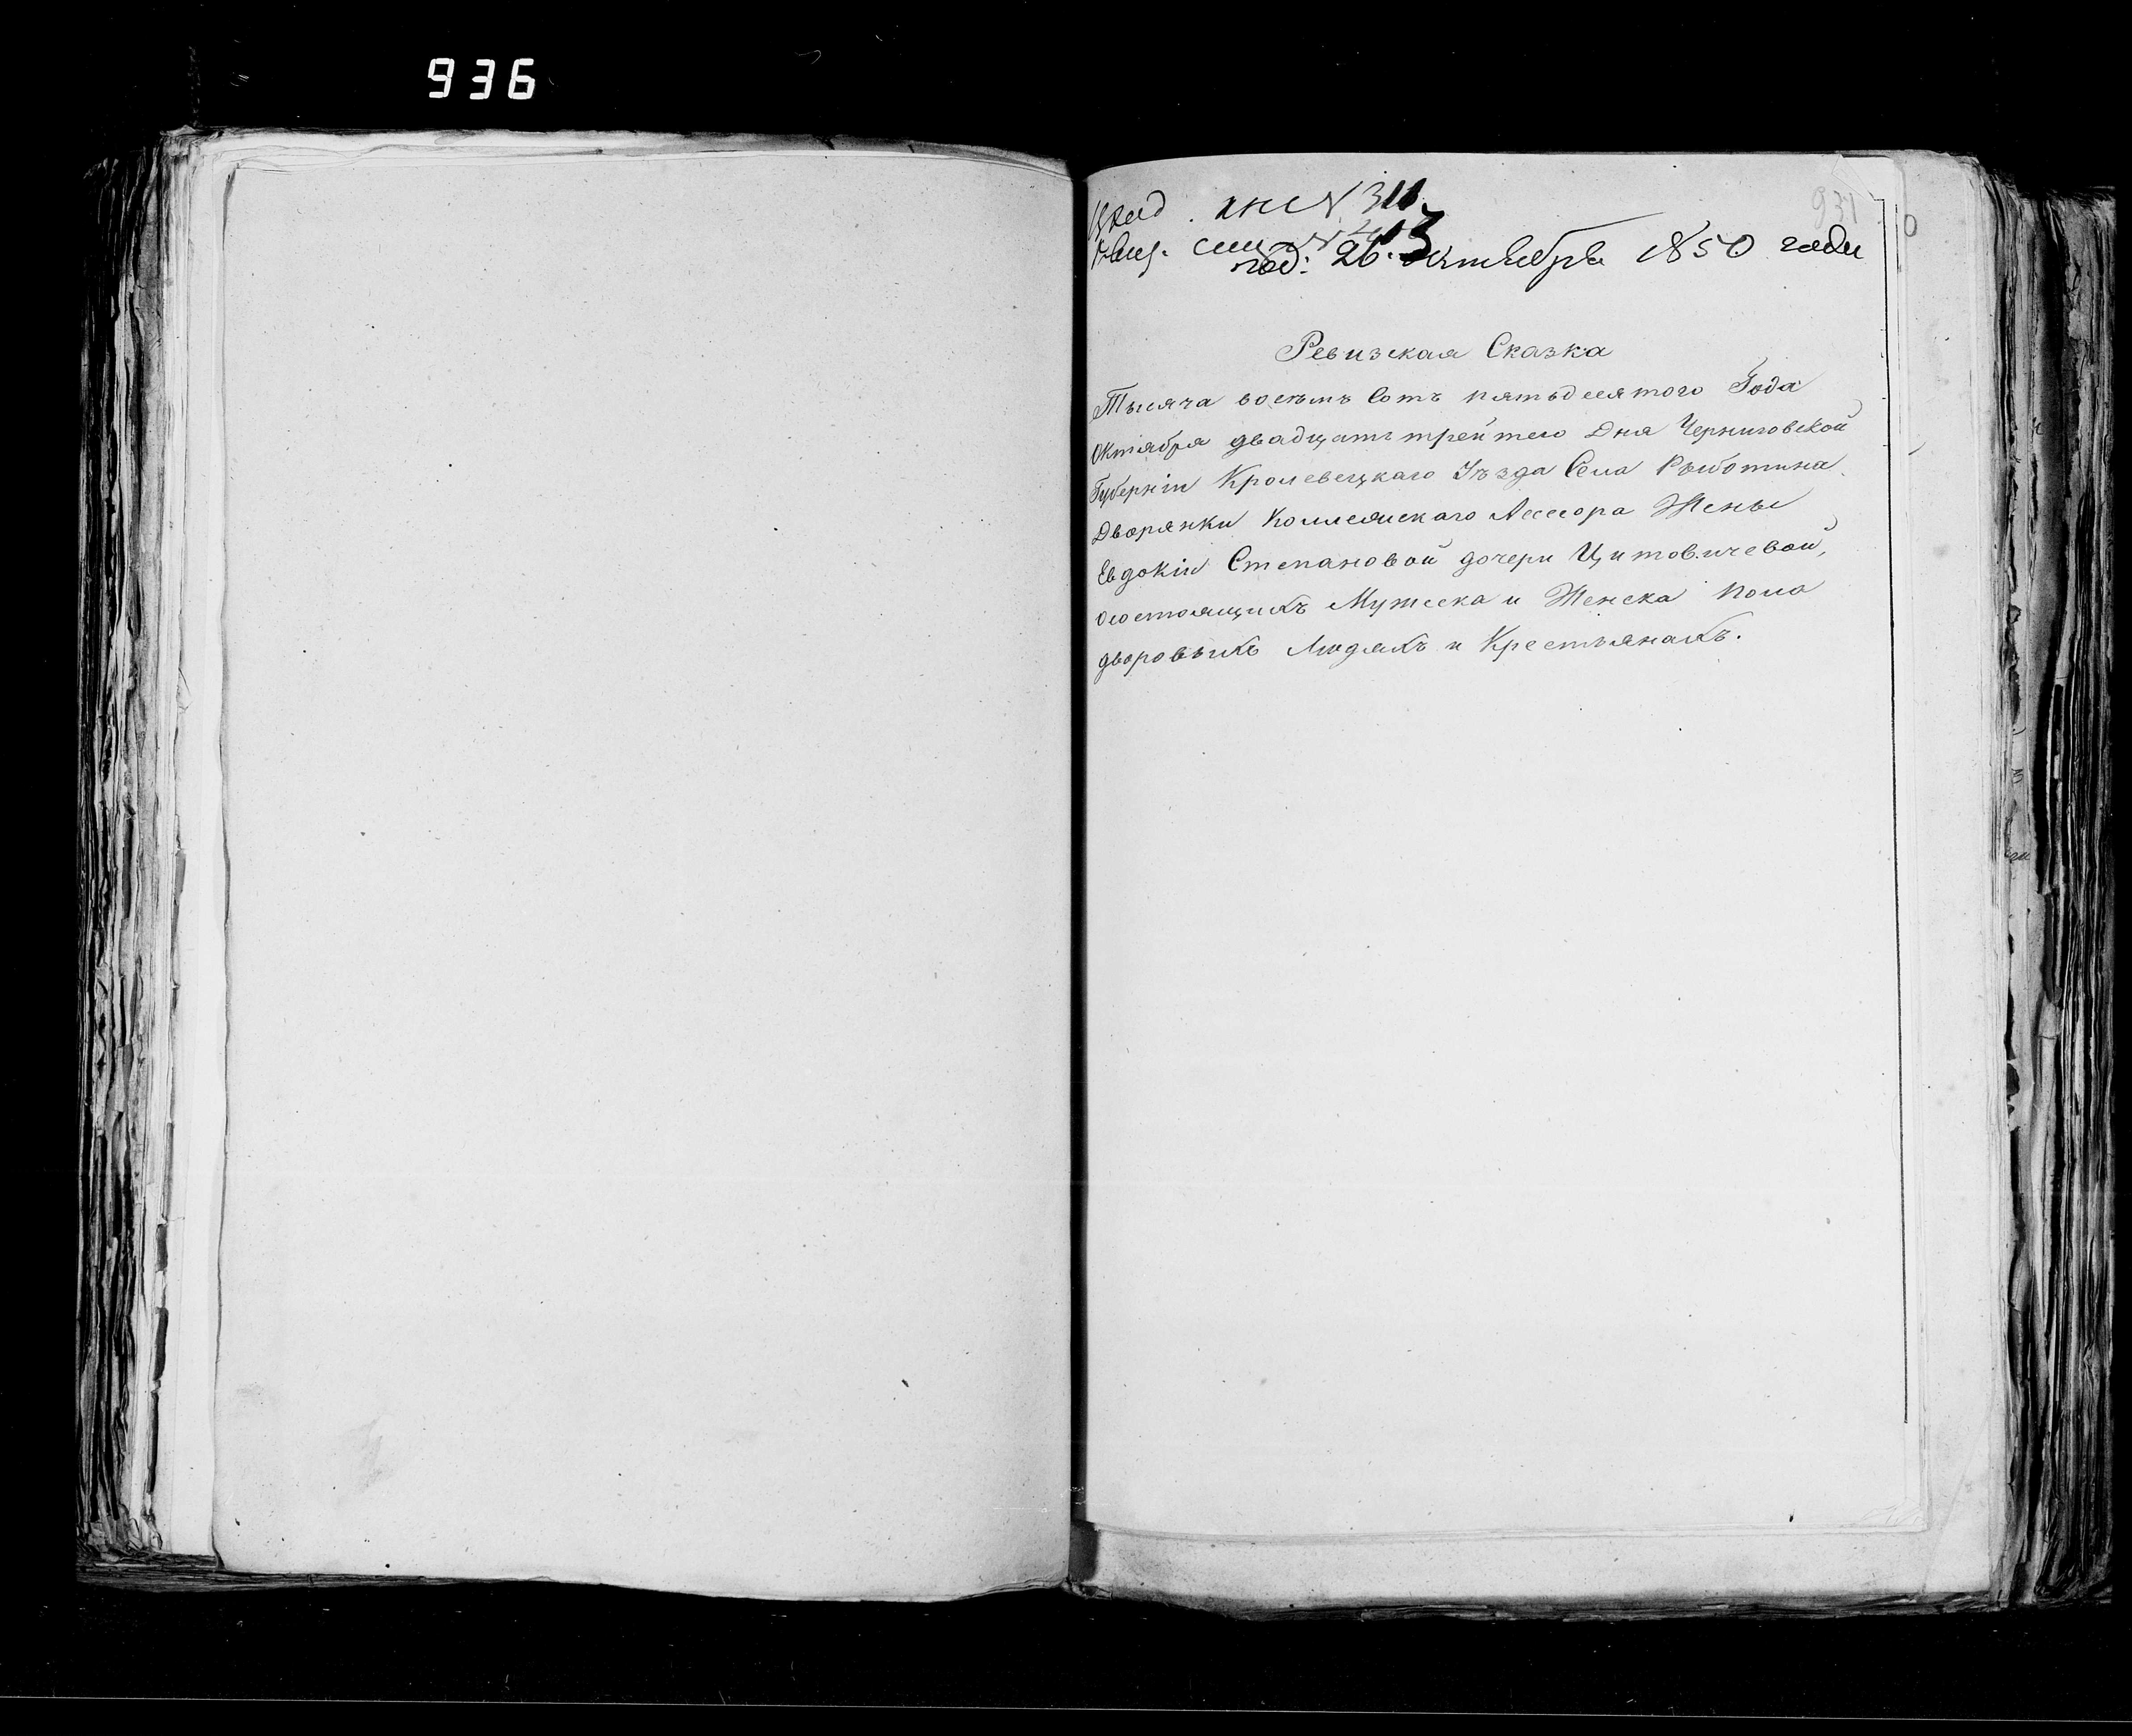 936
931
№ 311.
№ 403
под: 26. октября 1850 года
Ревизская Сказка
Тысяча восемь Сотъ пятьдесятого Года
Октября двадцать трейтего Дня Черниговской
Губерніи Кролевецкаго Уѣзда Села Рыботина
Дворянки Коллежскаго Асесора Жены
Евдокіи Степановой дочери Цитовичевой,
состоящихъ Мужеска и Женска пола
дворовыхъ Людяхъ и Крестьянахъ.